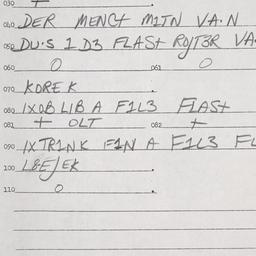 030 +
040 DER MENGt M1TN VA.N
050 DU.S 1 D3 FLASt ROJT3R VA
060 O 061 O
070 KORE K
080 1XOB LIB A F1L3 FLASt
081 + OLT 082 +
090 1XTR1NK F1N A F1L3 FL
100 L&E/EK
110 O